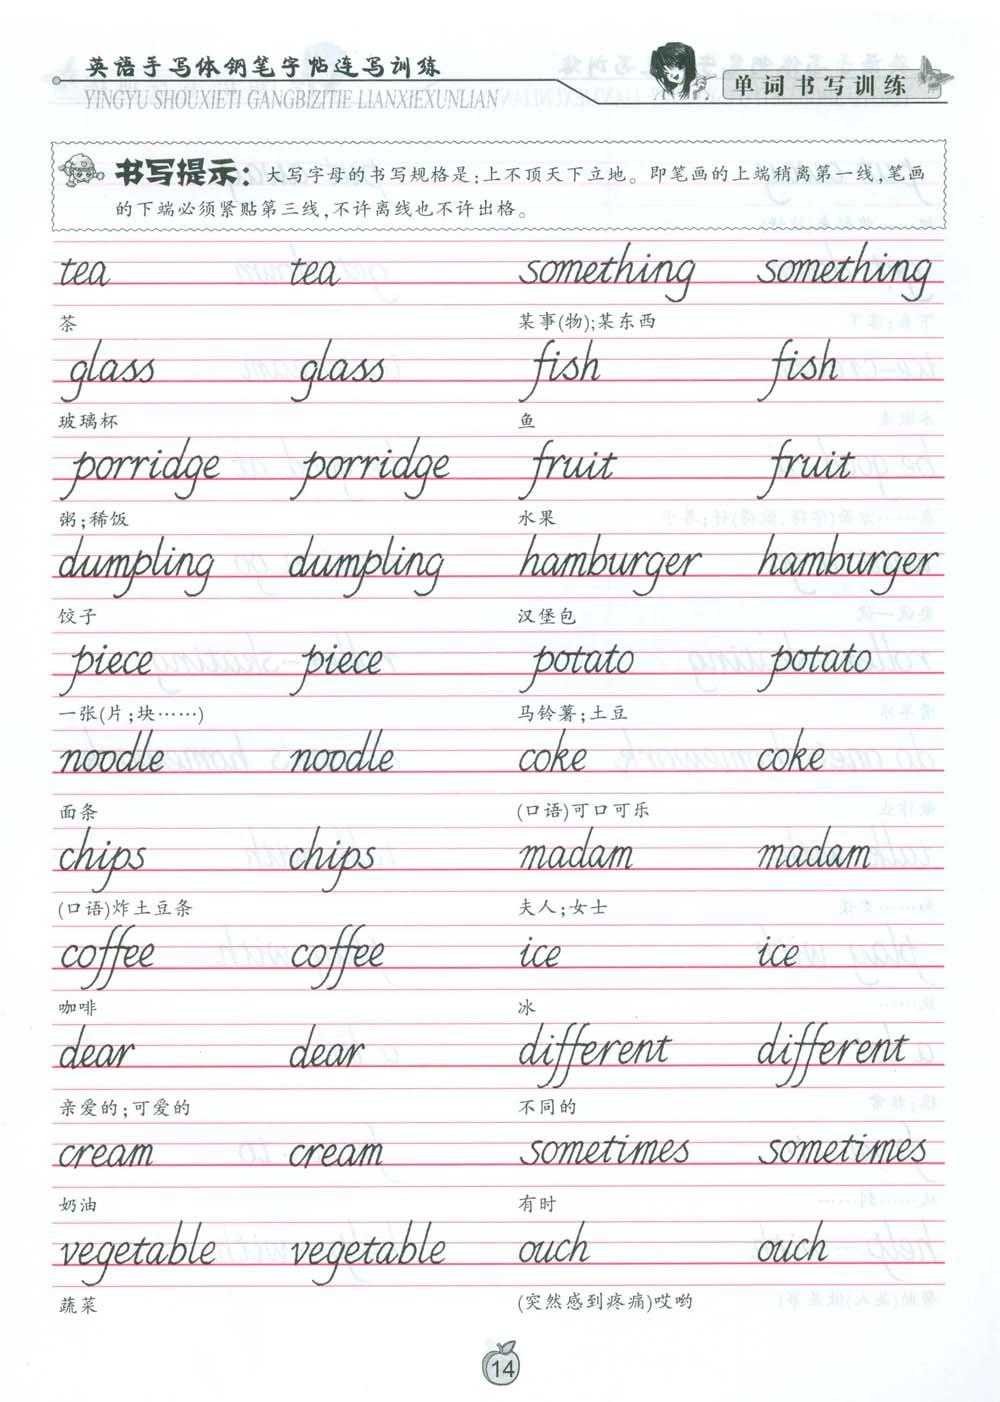 英语手写体钢笔字帖连写训练
YINGYU SHOUXIETI GANGBIZITIE LIANXIEXUNLIAN
单词书写训练
书写提示：大写字母的书写规格是：上不顶天下立地。即笔画的上端稍离第一线，笔画
的下端必须紧贴第三线，不许离线也不许出格。
tea tea something something
茶 某事(物);某东西
glass glass fish fish
玻璃杯 鱼
porridge porridge fruit fruit
粥;稀饭 水果
dumpling dumpling hamburger hamburger
饺子 汉堡包
piece piece potato potato
一张(片;块……) 马铃薯;土豆
noodle noodle coke coke
面条 (口语)可口可乐
chips chips madam madam
(口语)炸土豆条 夫人;女士
coffee coffee ice ice
咖啡 冰
dear dear different different
亲爱的;可爱的 不同的
cream cream sometimes sometimes
奶油 有时
vegetable vegetable ouch ouch
蔬菜 (突然感到疼痛)哎哟
14